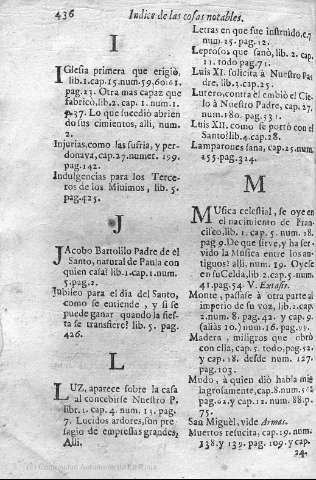 436 Indice de las cosas notables.
I
IGlesia primera que erigiò,
lib.1.cap.15.num.59.60.61.
pag.23. Otra mas capaz que
fabricò,lib.2. cap. 1. num.1.
p.37. Lo que sucediò abrien
do sus cimientos, alli, num.
2.
Injurias,como las sufria, y per-
donava,cap.27.numer. 199.
pag.142.
Indulgencias para los Terce-
ros de los Minimos, lib. 5.
pag.425.
J
JAcobo Bartolilo Padre de el
Santo, natural de Paula con
quien casa? lib.1.cap.1.num.
5.pag.2.
Jubileo para el dia del Santo,
como se entiende, y si se
puede ganar quando la fies-
ta se transfiere? lib. 5. pag.
426.
L
LUZ, aparece sobre la casa
al concebirse Nuestro P.
libr.1. cap. 4. num. 13. pag.
7. Lucidos ardores,son pre-
sagio de empressas grandes,
Alli.
Letras en que fue instruido,c.7
num.25. pag.12.
Leproso, que sanò, lib. 2. cap.
11. todo pag.71.
Luis XI. solicita à Nuestro Pa-
dre, lib.1.cap.25.
Lutero,contra el embiò el Cie-
lo à Nuestro Padre, cap. 27.
num.180. pag.531.
Luis XII. como se portò con el
Santo?lib.4.cap.28.
Lamparones sana,cap.25.num.
255.pag.324.
M
MUsica celestial, se oye en
el nacimiento de Fran-
cisco,lib. 1. cap. 5. num. 18.
pag 9.De que sirve,y ha ser-
vido la Musica entre los an-
tiguos? alli, num. 19. Oyese
en su Celda,lib.2.cap.5.num.
41.pag.54. V. Extasis.
Monte, passase à otra parte al
imperio de su voz, lib.1.cap.
2.num. 8. pag. 42. y cap. 9.
(aliàs 20.) num.16. pag.
Madera, milagros que obrò
con ella, cap. 5. todo, pag.52.
y cap.18. desde num. 127.
pag.103.
Mudo, à quien diò habla mi-
lagrosamente, cap.8.num.
pag.62.y cap.12. num. 88.p.
75.
San Miguel, vide Armas.
Muertos resucita, cap.19. num.
138.y 139. pag. 109.y cap.
24.